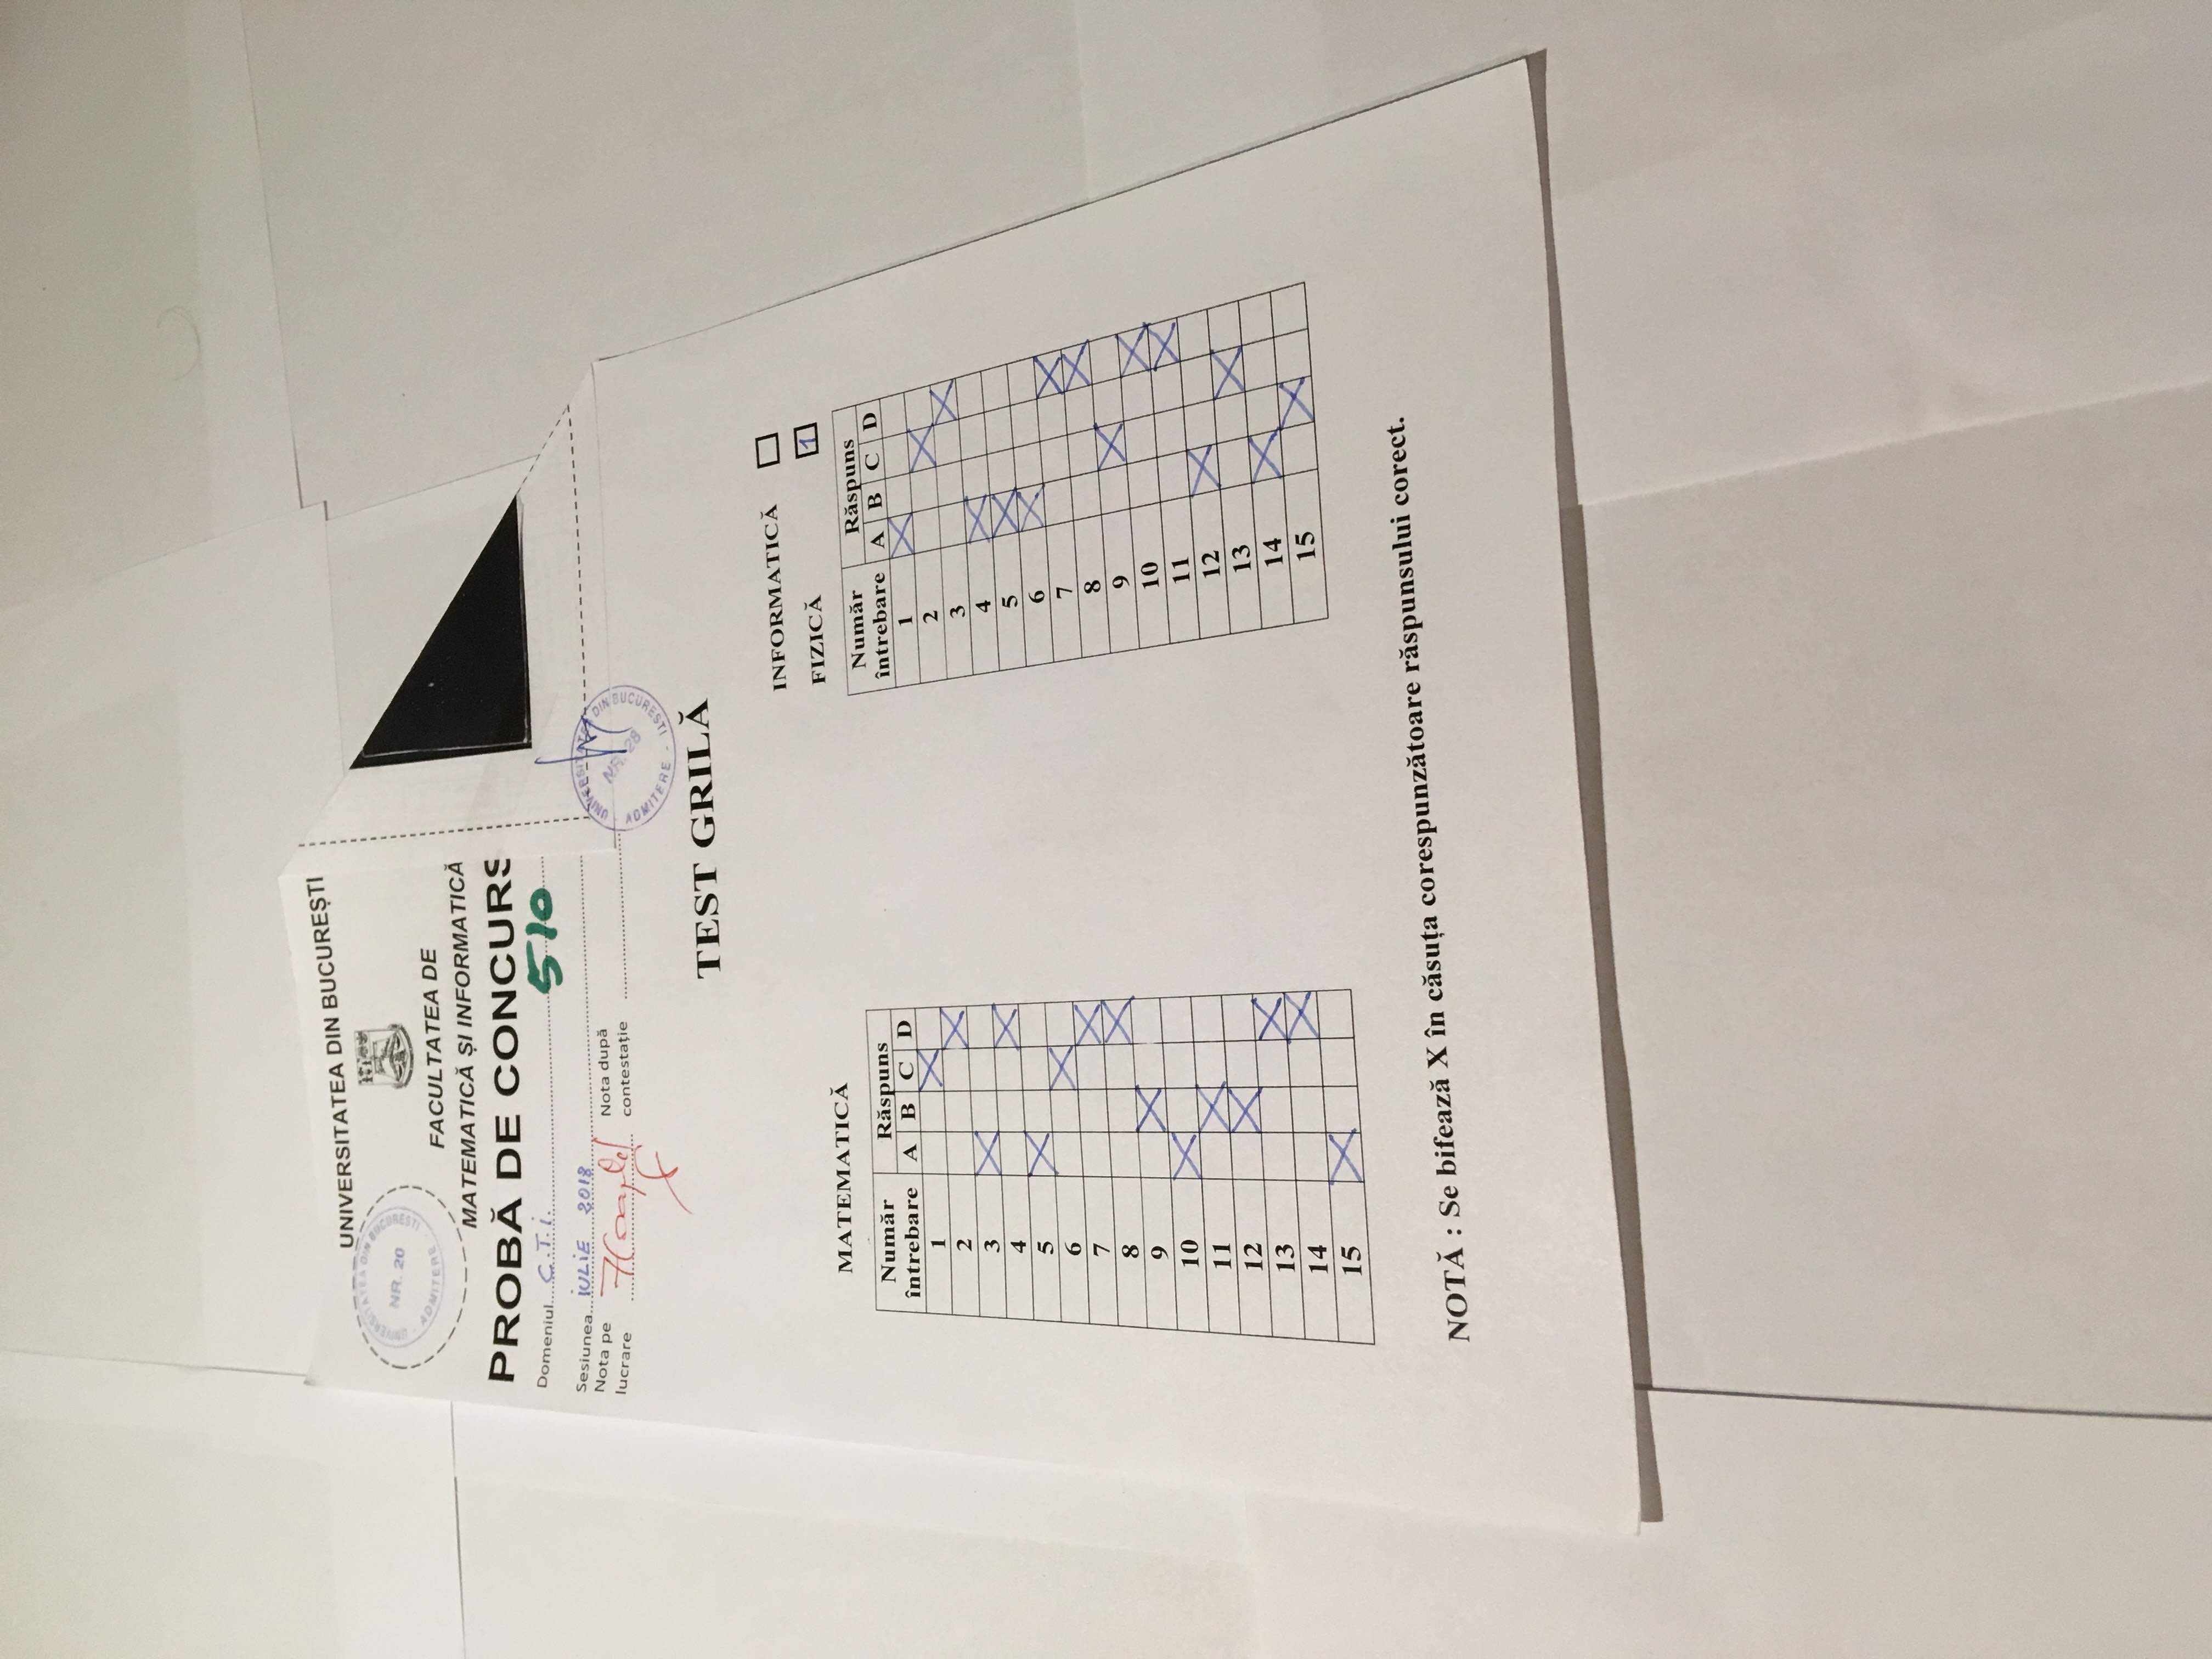 UNIVERSITATEA DIN BUCUREȘTI
UNIVERSITATEA DIN BUCUREȘTI
NR. 20
ADMITERE
FACULTATEA DE
MATEMATICĂ ȘI INFORMATICĂ
PROBĂ DE CONCURS
Domeniul C.T.i. 510
Sesiunea iULiE 2018
Nota pe lucrare 7(șapte)
Nota după contestație
UNIVERSITATEA DIN BUCURESTI
NR. 28
ADMITERE
TEST GRILĂ
INFORMATICĂ
FIZICĂ 1
MATEMATICĂ
Număr întrebare Răspuns
A B C D
1 X
2 X
3 X
4 X
5 X
6 X
7 X
8 X
9 X
10 X
11 X
12 X
13 X
14 X
15 X
Număr întrebare Răspuns
A B C D
1 X
2 X
3 X
4 X
5 X
6 X
7 X
8 X
9 X
10 X
11 X
12 X
13 X
14 X
15 X
NOTĂ : Se bifează X în căsuța corespunzătoare răspunsului corect.